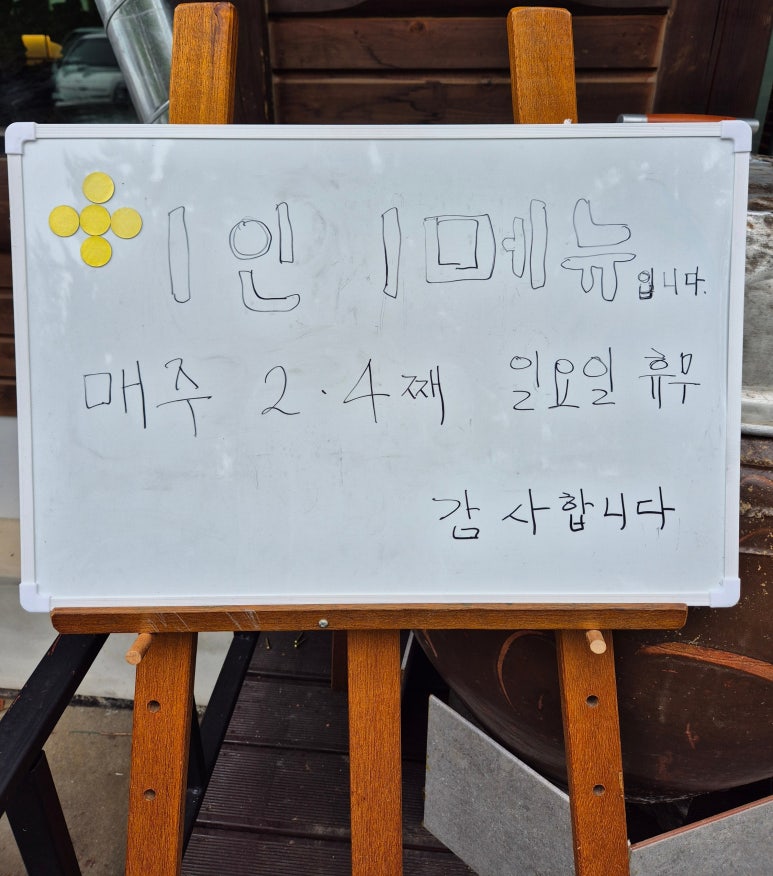 1인 1메뉴입니다.
매주 2·4째 일요일 휴무
감사합니다